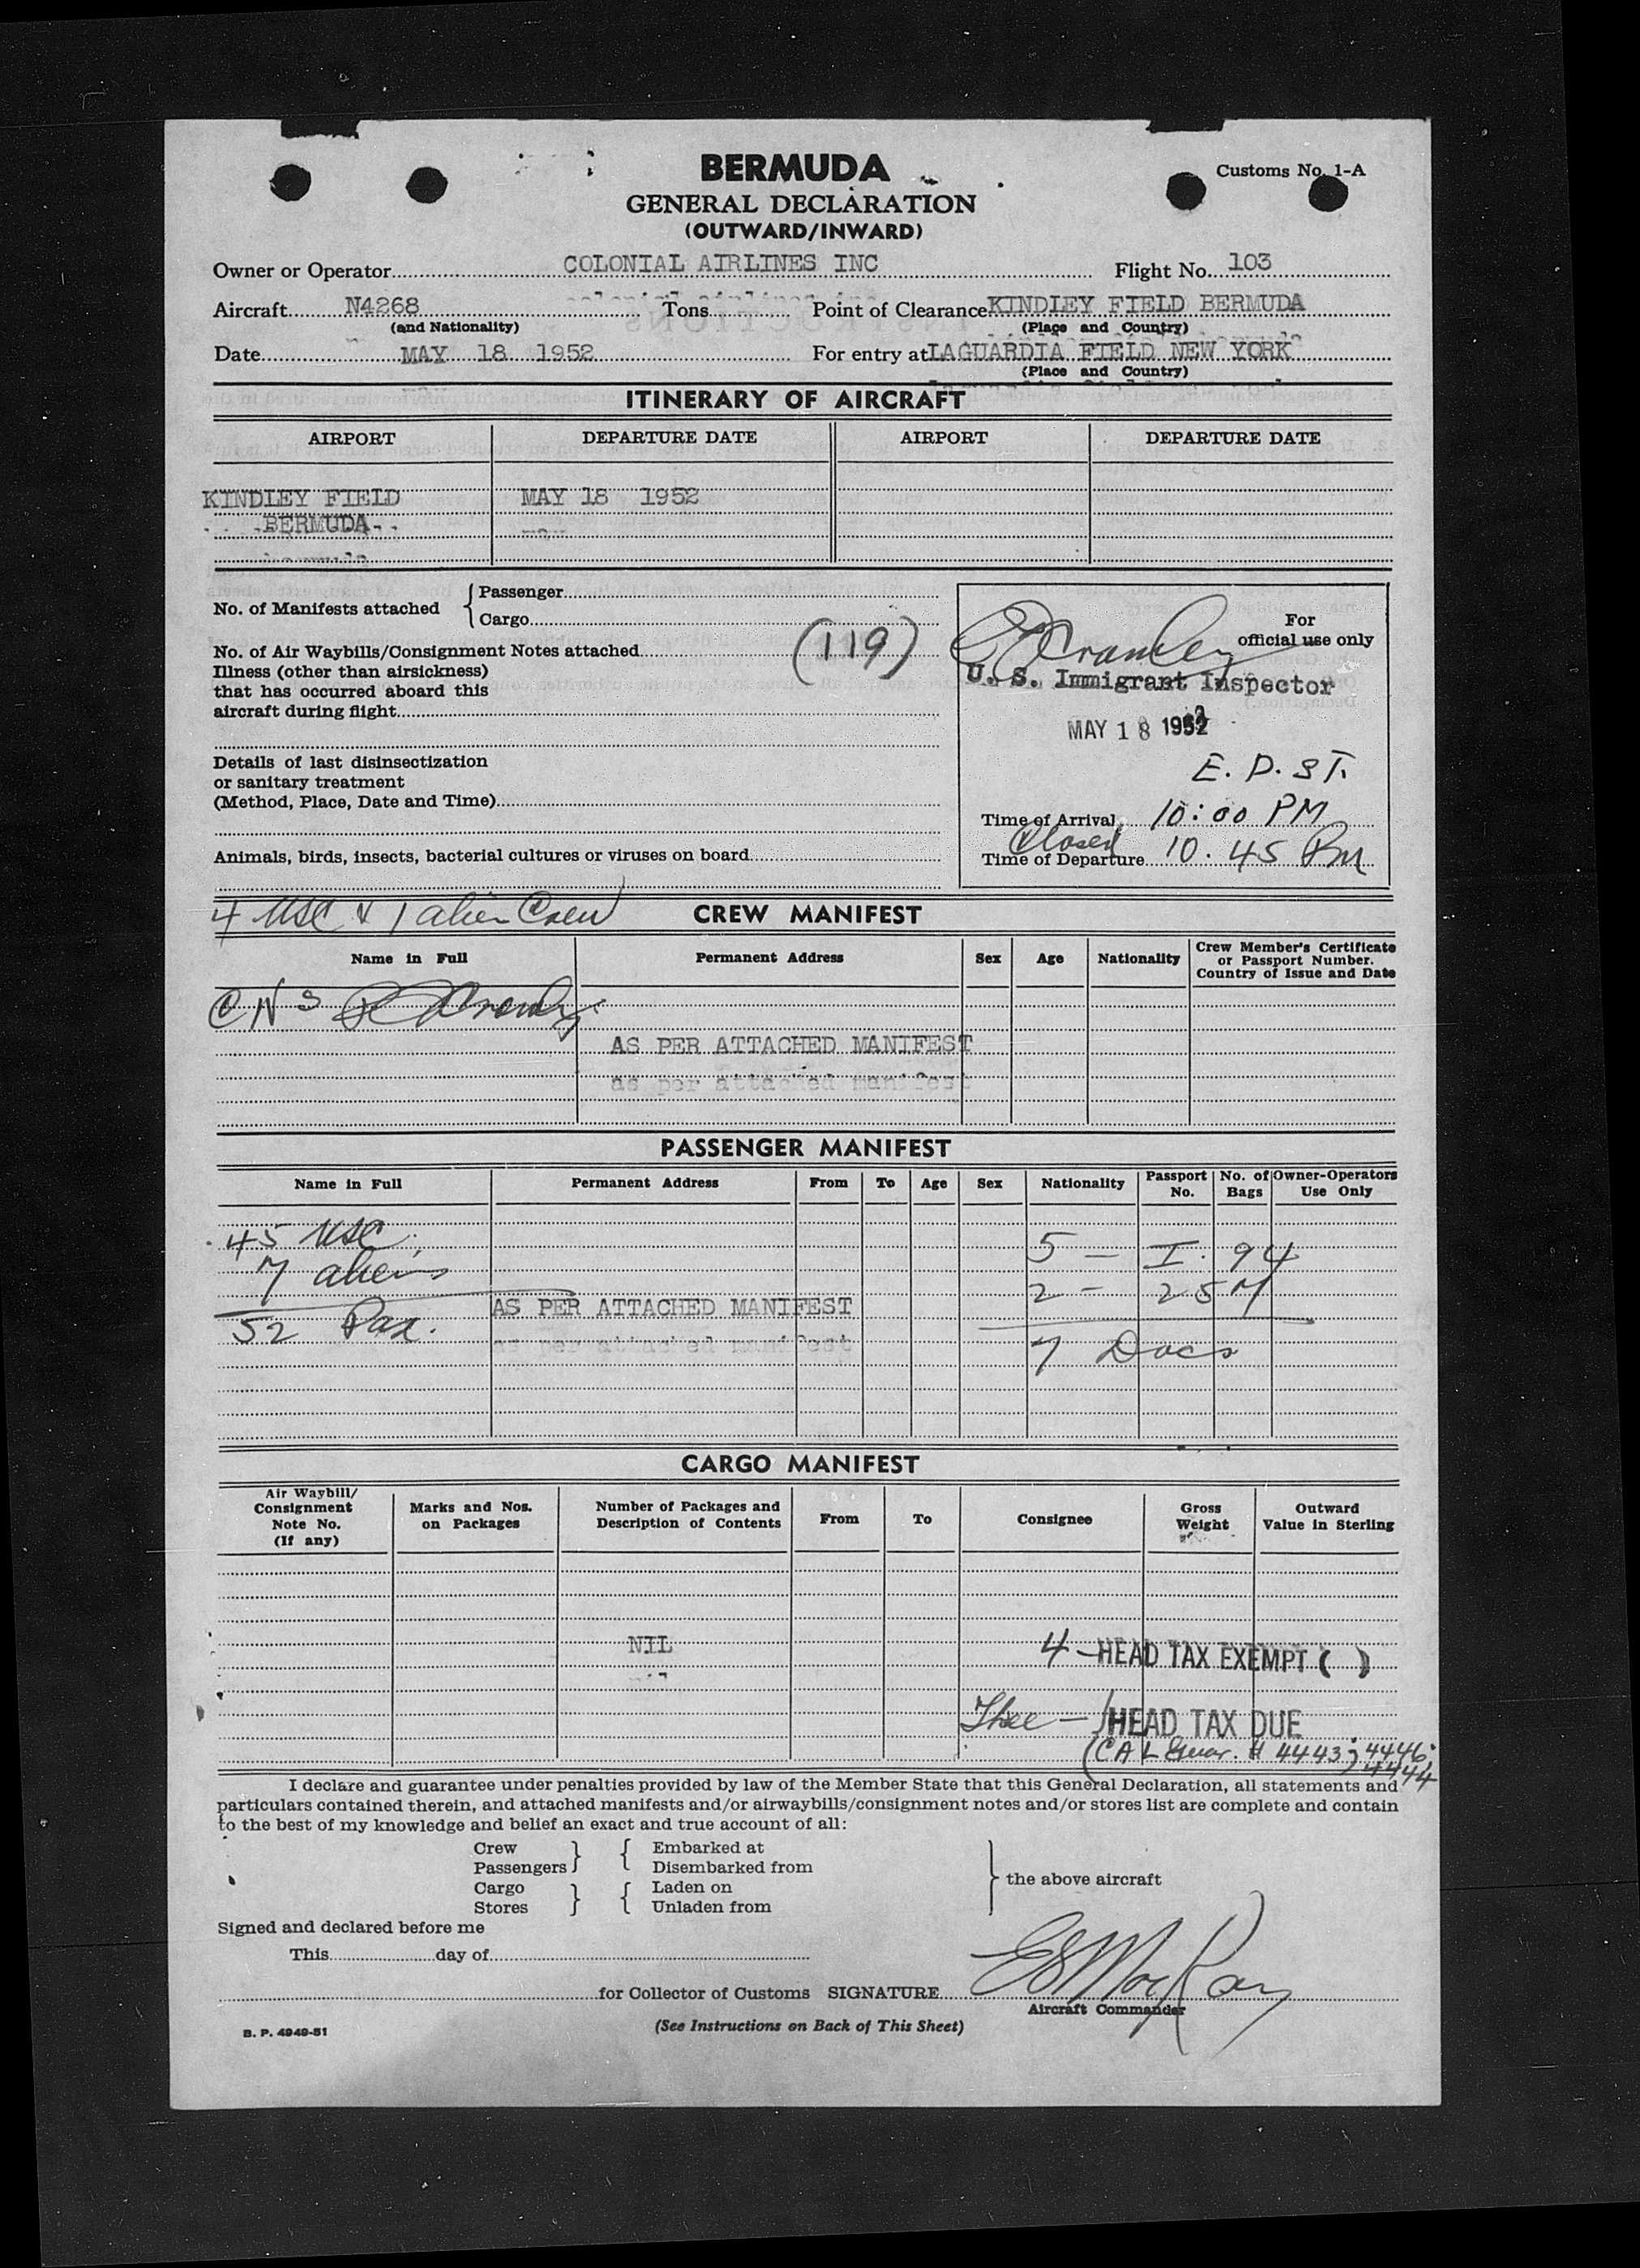 BERMUDA
Customs No. 1-A
GENERAL DECLARATION
(OUTWARD/INWARD)
Owner or Operator COLONIAL AIRLINES INC Flight No. 103
Aircraft N4268 Tons Point of Clearance KINDLEY FIELD BERMUDA
(and Nationality) (Place and Country)
Date MAY 18 1952 For entry at LAGUARDIA FIELD NEW YORK
(Place and Country)
ITINERARY OF AIRCRAFT
AIRPORT DEPARTURE DATE AIRPORT DEPARTURE DATE
KINDLEY FIELD MAY 18 1952
BERMUDA
No. of Manifests attached { Passenger
Cargo
No. of Air Waybills/Consignment Notes attached (119)
Illness (other than airsickness)
that has occurred aboard this
aircraft during flight
Details of last disinsectization
or sanitary treatment
(Method, Place, Date and Time)
Animals, birds, insects, bacterial cultures or viruses on board
For
official use only
U. S. Immigrant Inspector
MAY 18 1952
E. D. S T.
Time of Arrival 10:00 PM
Closed
Time of Departure 10.45 PM
4 USC & 1 alien Crew CREW MANIFEST
Name in Full Permanent Address Sex Age Nationality Crew Member's Certificate or Passport Number. Country of Issue and Date
AS PER ATTACHED MANIFEST
as per attached manifest
PASSENGER MANIFEST
Name in Full Permanent Address From To Age Sex Nationality Passport No. No. of Bags Owner-Operators Use Only
45 USC 5 - I. 94
7 aliens 2 - 257
52 Pax. AS PER ATTACHED MANIFEST
as per attached manifest 7 Docs
CARGO MANIFEST
Air Waybill/ Consignment Note No. (If any) Marks and Nos. on Packages Number of Packages and Description of Contents From To Consignee Gross Weight Outward Value in Sterling
NIL 4 - HEAD TAX EXEMPT ( )
HEAD TAX DUE
(CAL Guar. # 4443; 4446;
4444
I declare and guarantee under penalties provided by law of the Member State that this General Declaration, all statements and
particulars contained therein, and attached manifests and/or airwaybills/consignment notes and/or stores list are complete and contain
to the best of my knowledge and belief an exact and true account of all:
Crew } { Embarked at
Passengers Disembarked from
Cargo } { Laden on } the above aircraft
Stores Unladen from
Signed and declared before me
This day of
for Collector of Customs SIGNATURE E S MacKay
Aircraft Commander
B. P. 4949-51 (See Instructions on Back of This Sheet)